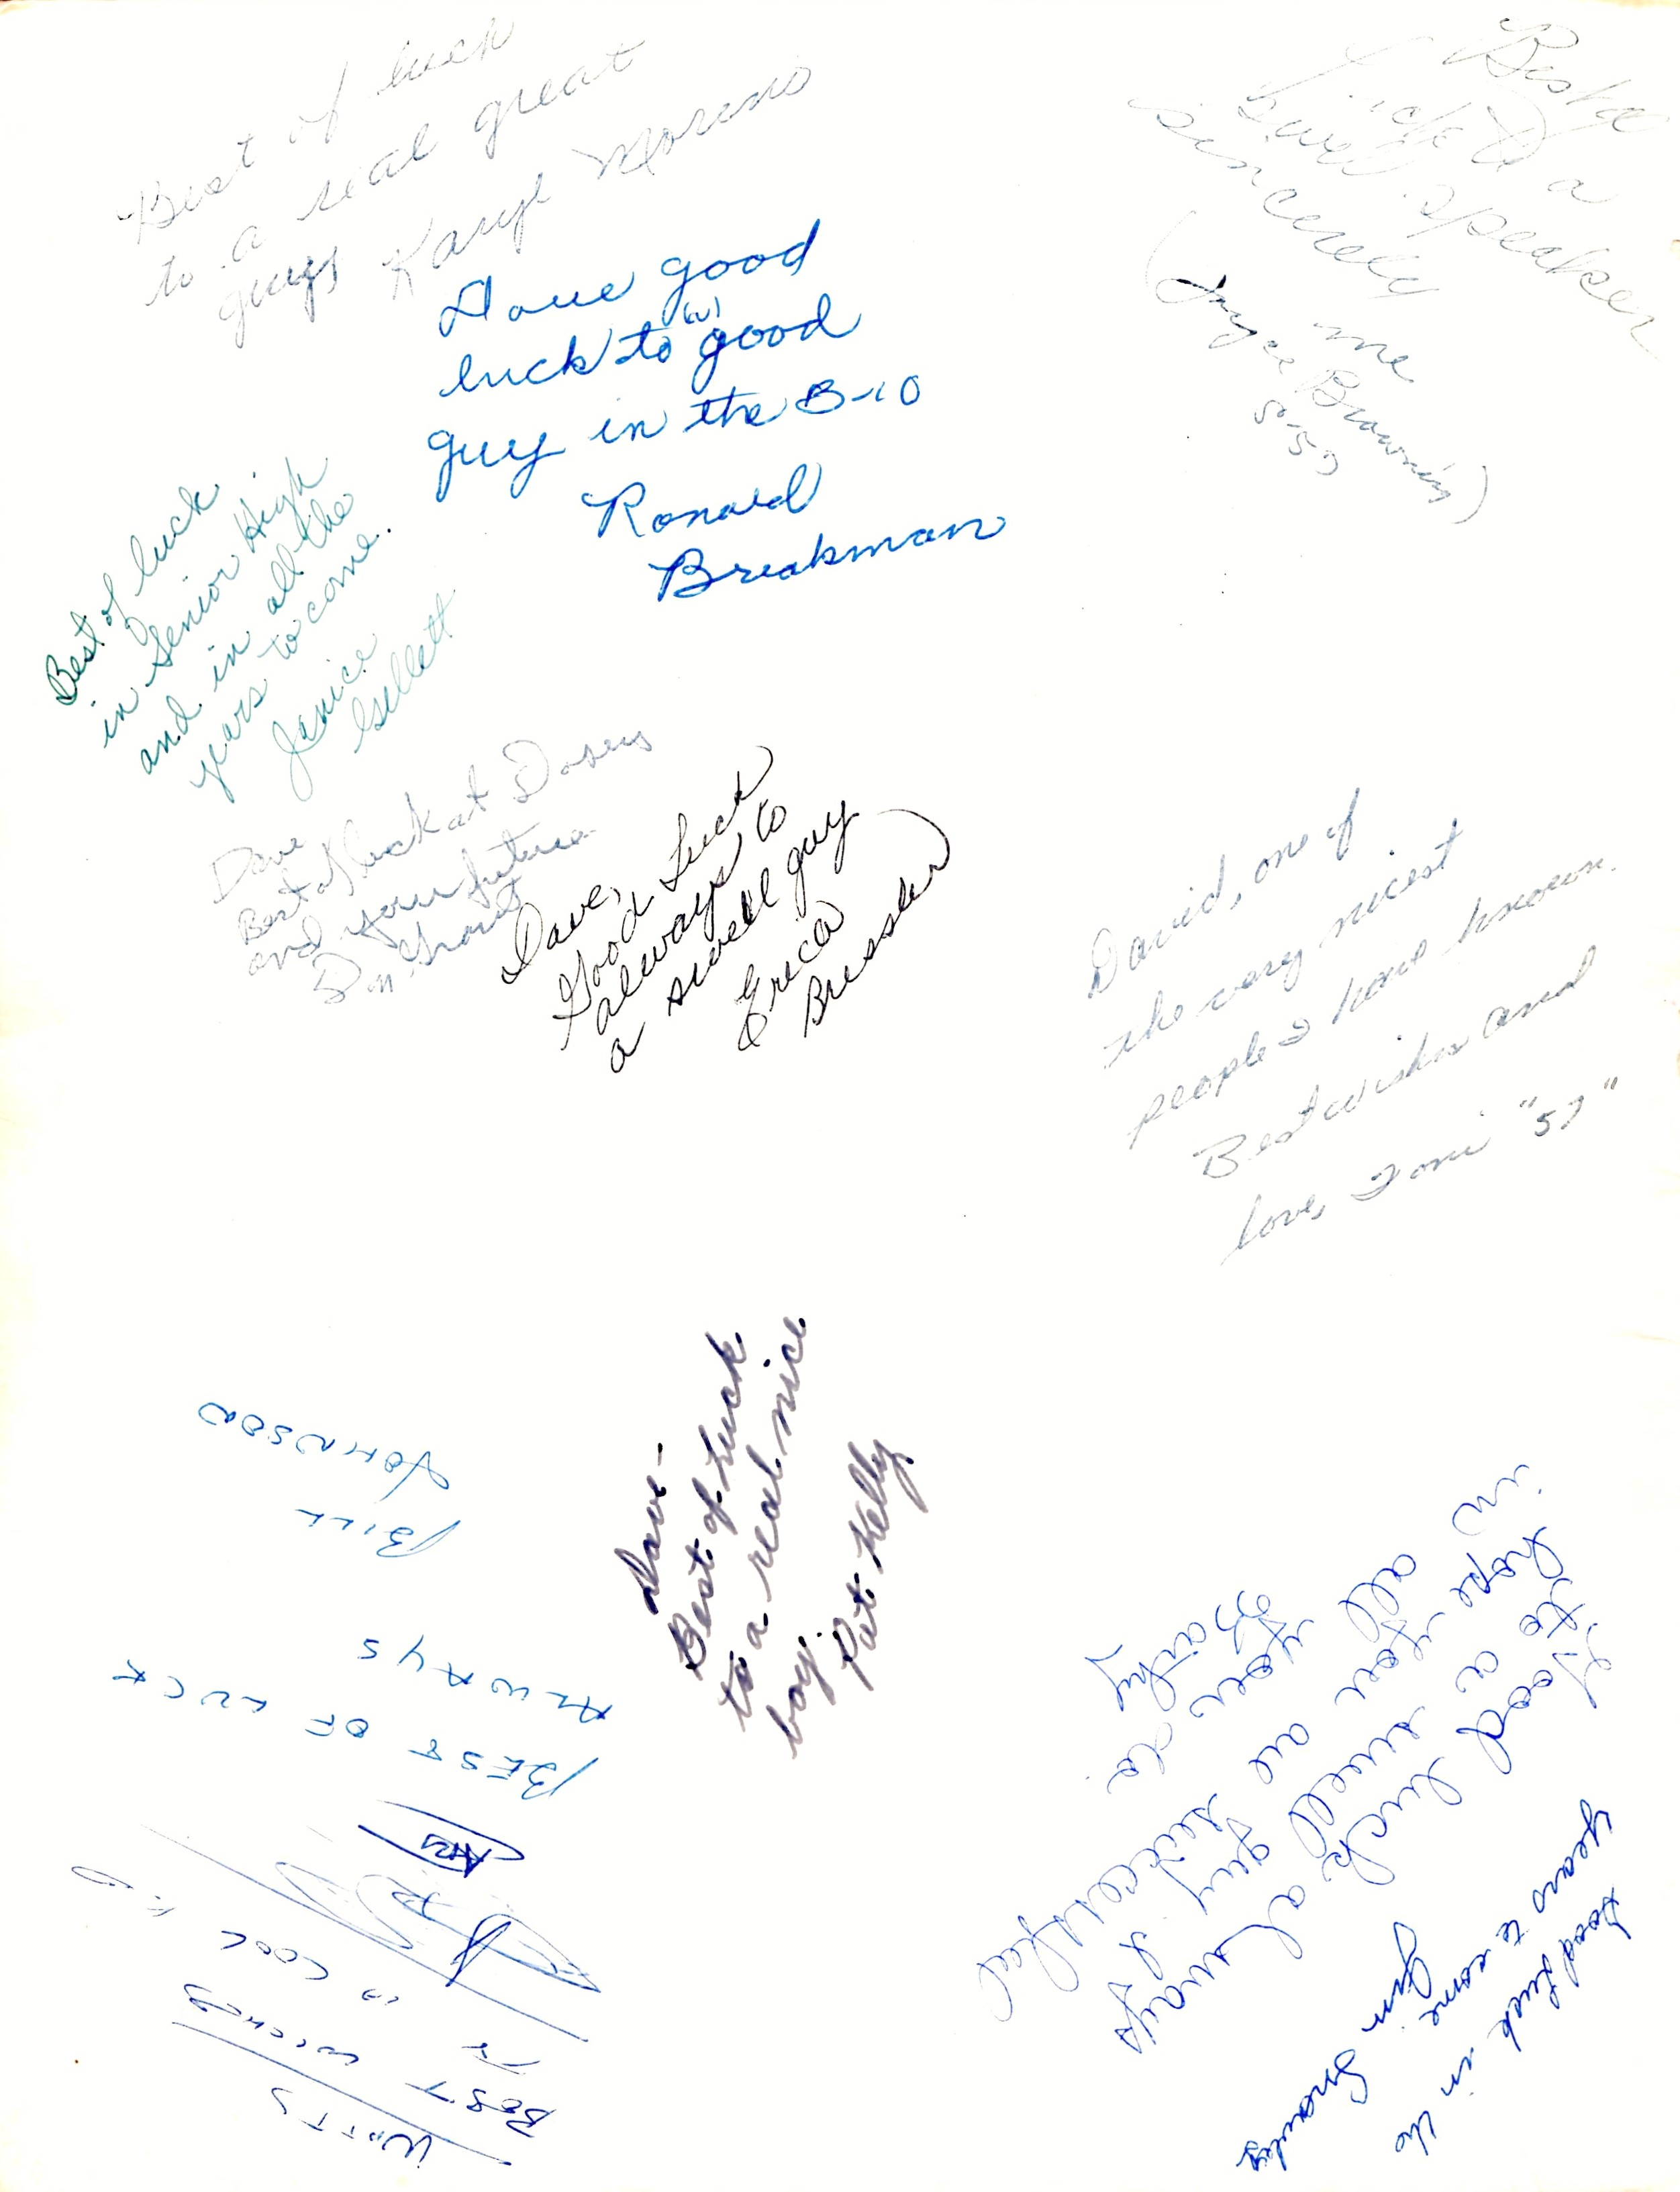 Best of luck
to a real great
guys Karyl Moreno
Best of
Luck to a
swell speaker
sincerely
me
(Joyce Browning)
S'57
Dave good
luck to (a) good
guy in the B-10
Ronald
Breakman
Best of luck
in Senior High
and in all the
years to come.
Janice
Gillett
Dave
Best of luck at Dorsey
and your future
Don Grant
Dave,
Good Luck
always to
a swell guy
Erica
Bressler
David, one of
the very nicest
people I have known.
Best wishes and
love, Toni "57"
Dave-
Best of Luck
to a real nice
boy.
Pat Kelly
BEST OF LUCK
ALWAYS
BILL
JOHNSON
WATTS
BEST WISHES
TO
A COOL KID
Good luck always
to a swell guy I
hope you are successful
in all you do
Cathy
Good Luck in the
years to come
Jan